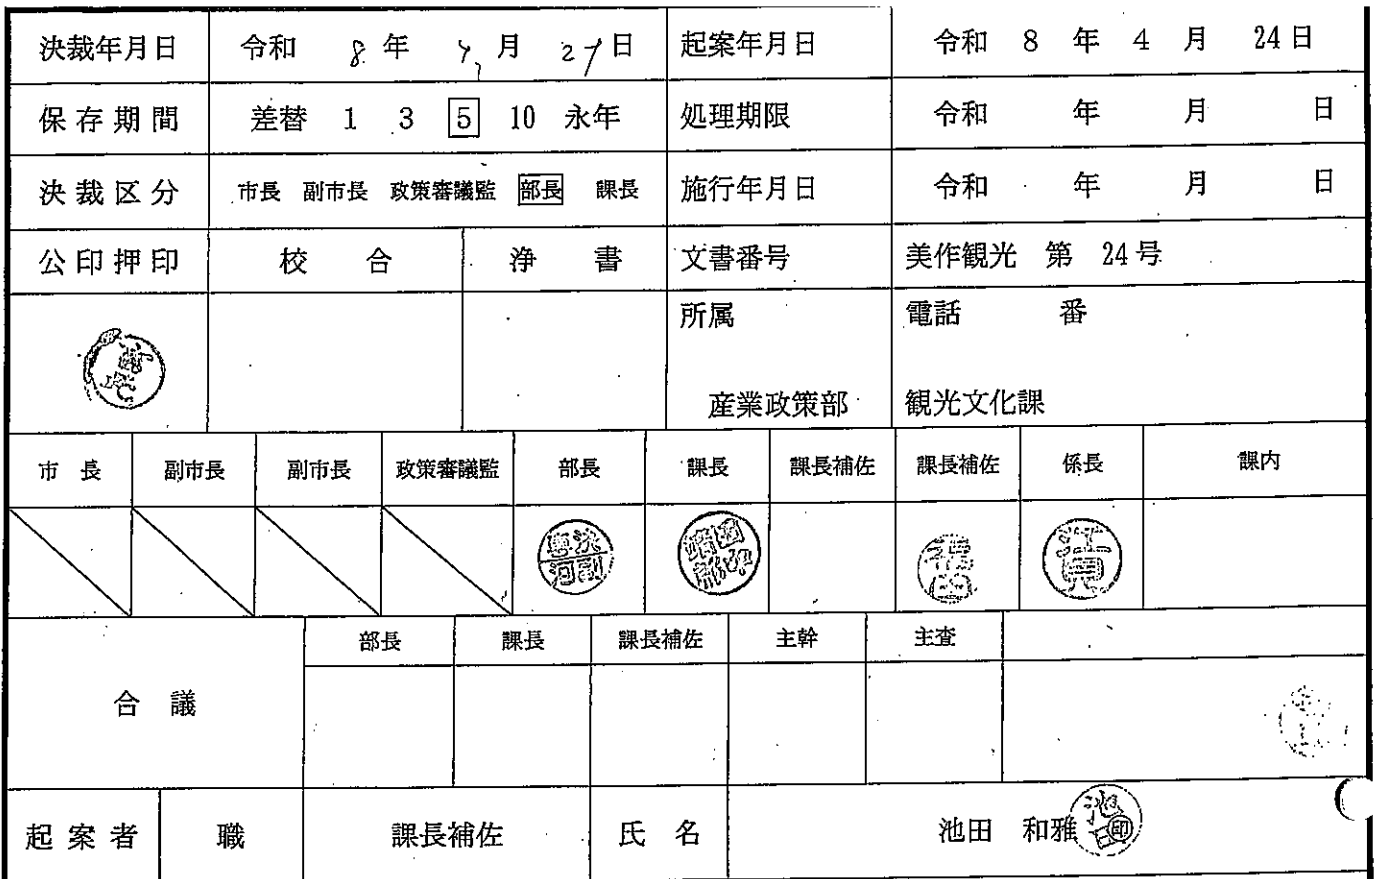 決裁年月日 令和 8 年 月 27日 起案年月日 令和 8 年 4 月 24日
保存期間 差替 1 3 5 10 永年 処理期限 令和 年 月 日
決裁区分 市長 副市長 政策審議監 部長 課長 施行年月日 令和 年 月 日
公印押印 校合 浄書 文書番号 美作観光 第 24号
所属 電話 番
産業政策部 観光文化課
市長 副市長 副市長 政策審議監 部長 課長 課長補佐 課長補佐 係長 課内
福田 江見
部長 課長 課長補佐 主幹 主査
合議
起案者 職 課長補佐 氏名 池田 和雅 池田 印